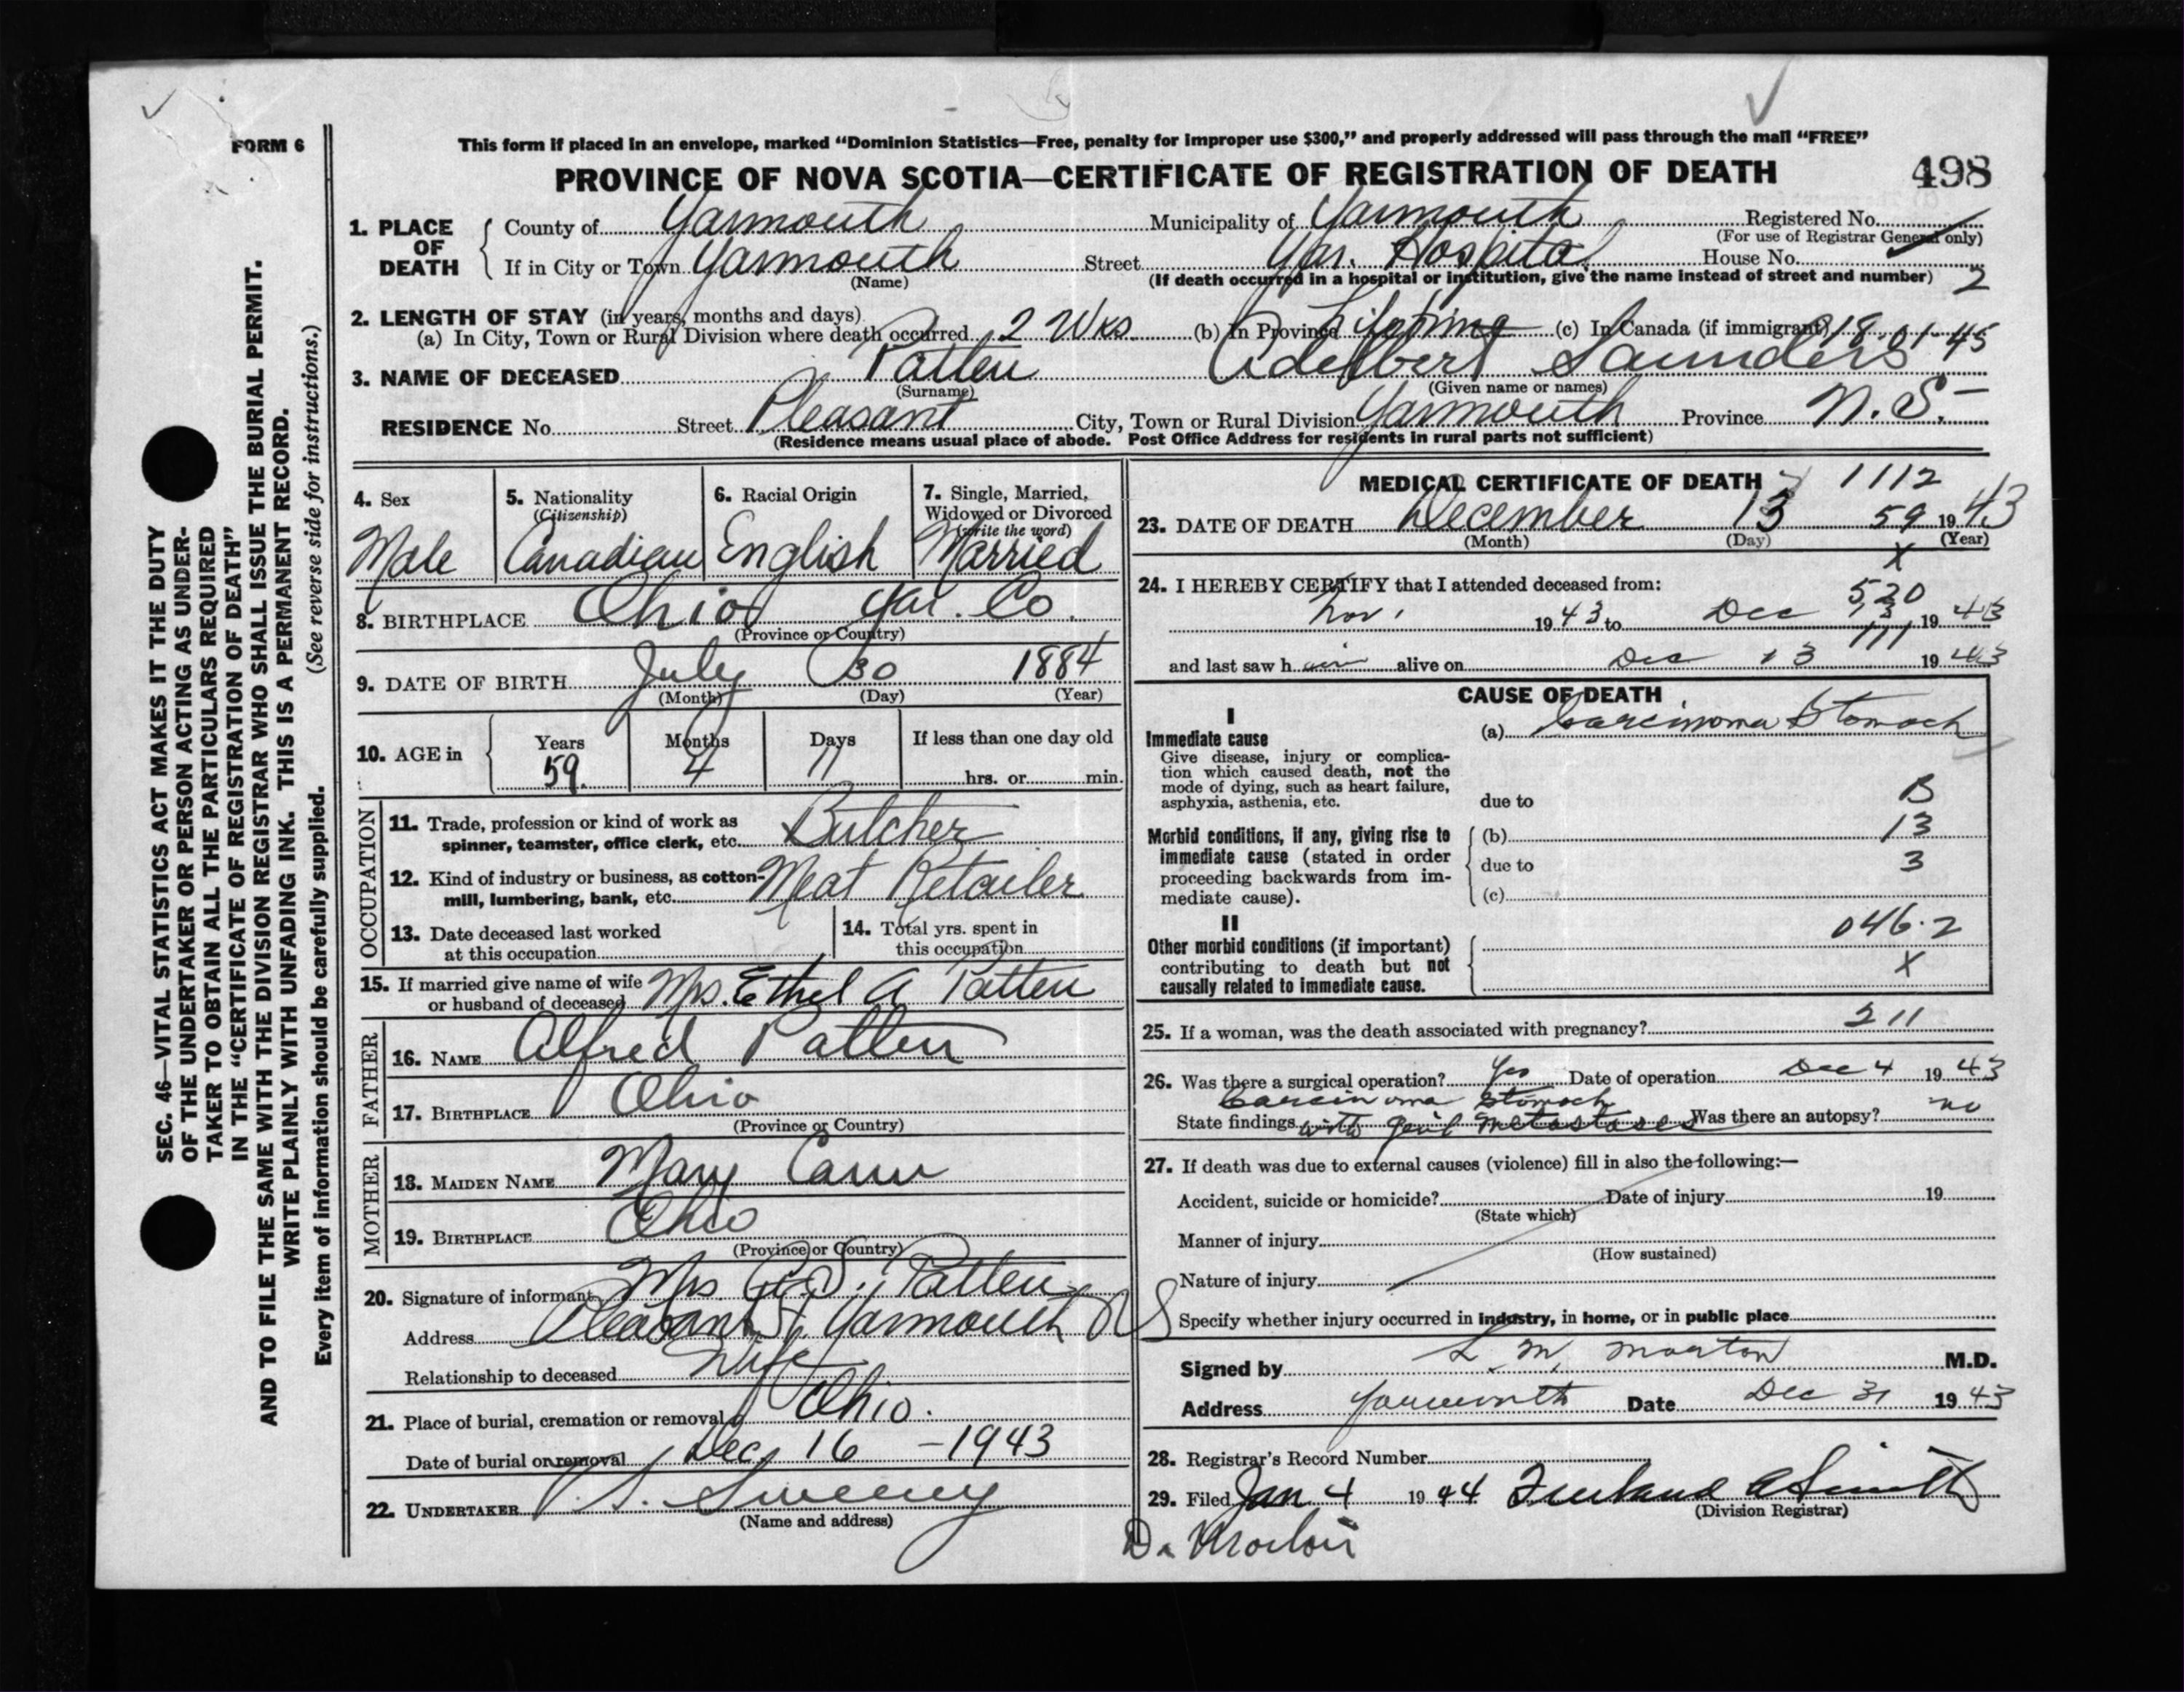 FORM 6
This form if placed in an envelope, marked "Dominion Statistics—Free, penalty for improper use $300," and properly addressed will pass through the mail "FREE"
PROVINCE OF NOVA SCOTIA—CERTIFICATE OF REGISTRATION OF DEATH 498
1. PLACE OF DEATH County of Yarmouth Municipality of Yarmouth Registered No.
(For use of Registrar General only)
If in City or Town Yarmouth Street Yar. Hospital House No.
(Name) (If death occurred in a hospital or institution, give the name instead of street and number) 2
2. LENGTH OF STAY (in years, months and days)
(a) In City, Town or Rural Division where death occurred 2 Wks. (b) In Province Lifetime (c) In Canada (if immigrant) 01-45
3. NAME OF DECEASED Patten Adelbert Saunders
(Surname) (Given name or names)
RESIDENCE No. Street Pleasant City, Town or Rural Division Yarmouth Province N.S.
(Residence means usual place of abode. Post Office Address for residents in rural parts not sufficient)
4. Sex 5. Nationality 6. Racial Origin 7. Single, Married,
(Citizenship) Widowed or Divorced
(write the word)
Male Canadian English Married
8. BIRTHPLACE Ohio Yar. Co.
(Province or Country)
9. DATE OF BIRTH July 30 1884
(Month) (Day) (Year)
10. AGE in Years Months Days If less than one day old
59 4 11 hrs. or min.
OCCUPATION
11. Trade, profession or kind of work as
spinner, teamster, office clerk, etc. Butcher
12. Kind of industry or business, as cotton-
mill, lumbering, bank, etc. Meat Retailer
13. Date deceased last worked 14. Total yrs. spent in
at this occupation this occupation
15. If married give name of wife
or husband of deceased Mrs. Ethel A Patten
FATHER
16. NAME Alfred Patten
17. BIRTHPLACE Ohio
(Province or Country)
MOTHER
18. MAIDEN NAME Mary Cann
19. BIRTHPLACE Ohio
(Province or Country)
20. Signature of informant Mrs. A. S. Patten
Address Pleasant St. Yarmouth NS
Relationship to deceased Wife
21. Place of burial, cremation or removal Ohio.
Date of burial or removal Dec. 16 - 1943
22. UNDERTAKER V. S. Sweeny
(Name and address)
MEDICAL CERTIFICATE OF DEATH 1112
23. DATE OF DEATH December 13 59 1943
(Month) (Day) (Year)
X
24. I HEREBY CERTIFY that I attended deceased from:
520
Nov. 1943 to Dec 13 1943
111
and last saw him alive on Dec 13 1943
CAUSE OF DEATH
I
Immediate cause (a) Carcinoma Stomach
Give disease, injury or complica-
tion which caused death, not the
mode of dying, such as heart failure,
asphyxia, asthenia, etc. due to B
Morbid conditions, if any, giving rise to (b) 13
immediate cause (stated in order due to 3
proceeding backwards from im-
mediate cause). (c)
II 046.2
Other morbid conditions (if important)
contributing to death but not X
causally related to immediate cause.
25. If a woman, was the death associated with pregnancy? 211
26. Was there a surgical operation? Yes Date of operation Dec 4 1943
Carcinoma Stomach
State findings with genl metastases Was there an autopsy? no
27. If death was due to external causes (violence) fill in also the following:—
Accident, suicide or homicide? Date of injury 19
(State which)
Manner of injury
(How sustained)
Nature of injury
Specify whether injury occurred in industry, in home, or in public place
Signed by L. M. Morton M.D.
Address Yarmouth Date Dec 31 1943
28. Registrar's Record Number
29. Filed Jan 4 1944 A Smith
(Division Registrar)
Dr Morton
SEC. 46—VITAL STATISTICS ACT MAKES IT THE DUTY
OF THE UNDERTAKER OR PERSON ACTING AS UNDER-
TAKER TO OBTAIN ALL THE PARTICULARS REQUIRED
IN THE "CERTIFICATE OF REGISTRATION OF DEATH"
AND TO FILE THE SAME WITH THE DIVISION REGISTRAR WHO SHALL ISSUE THE BURIAL PERMIT.
WRITE PLAINLY WITH UNFADING INK. THIS IS A PERMANENT RECORD.
Every item of information should be carefully supplied. (See reverse side for instructions.)